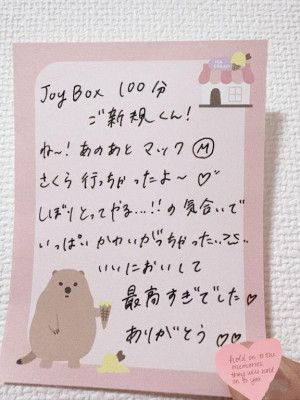 Joy Box 100分
ご新規くん!
ね~! あのあと マック Ⓜ
さくら 行っちゃったよ~♡
しぼりとってやる...!! の気合いで
いっぱい かわいがっちゃった..
いいにおいして
最高すぎでした♡
ありがとう ♡♡
hold on to the
memories,
they will hold
on to you